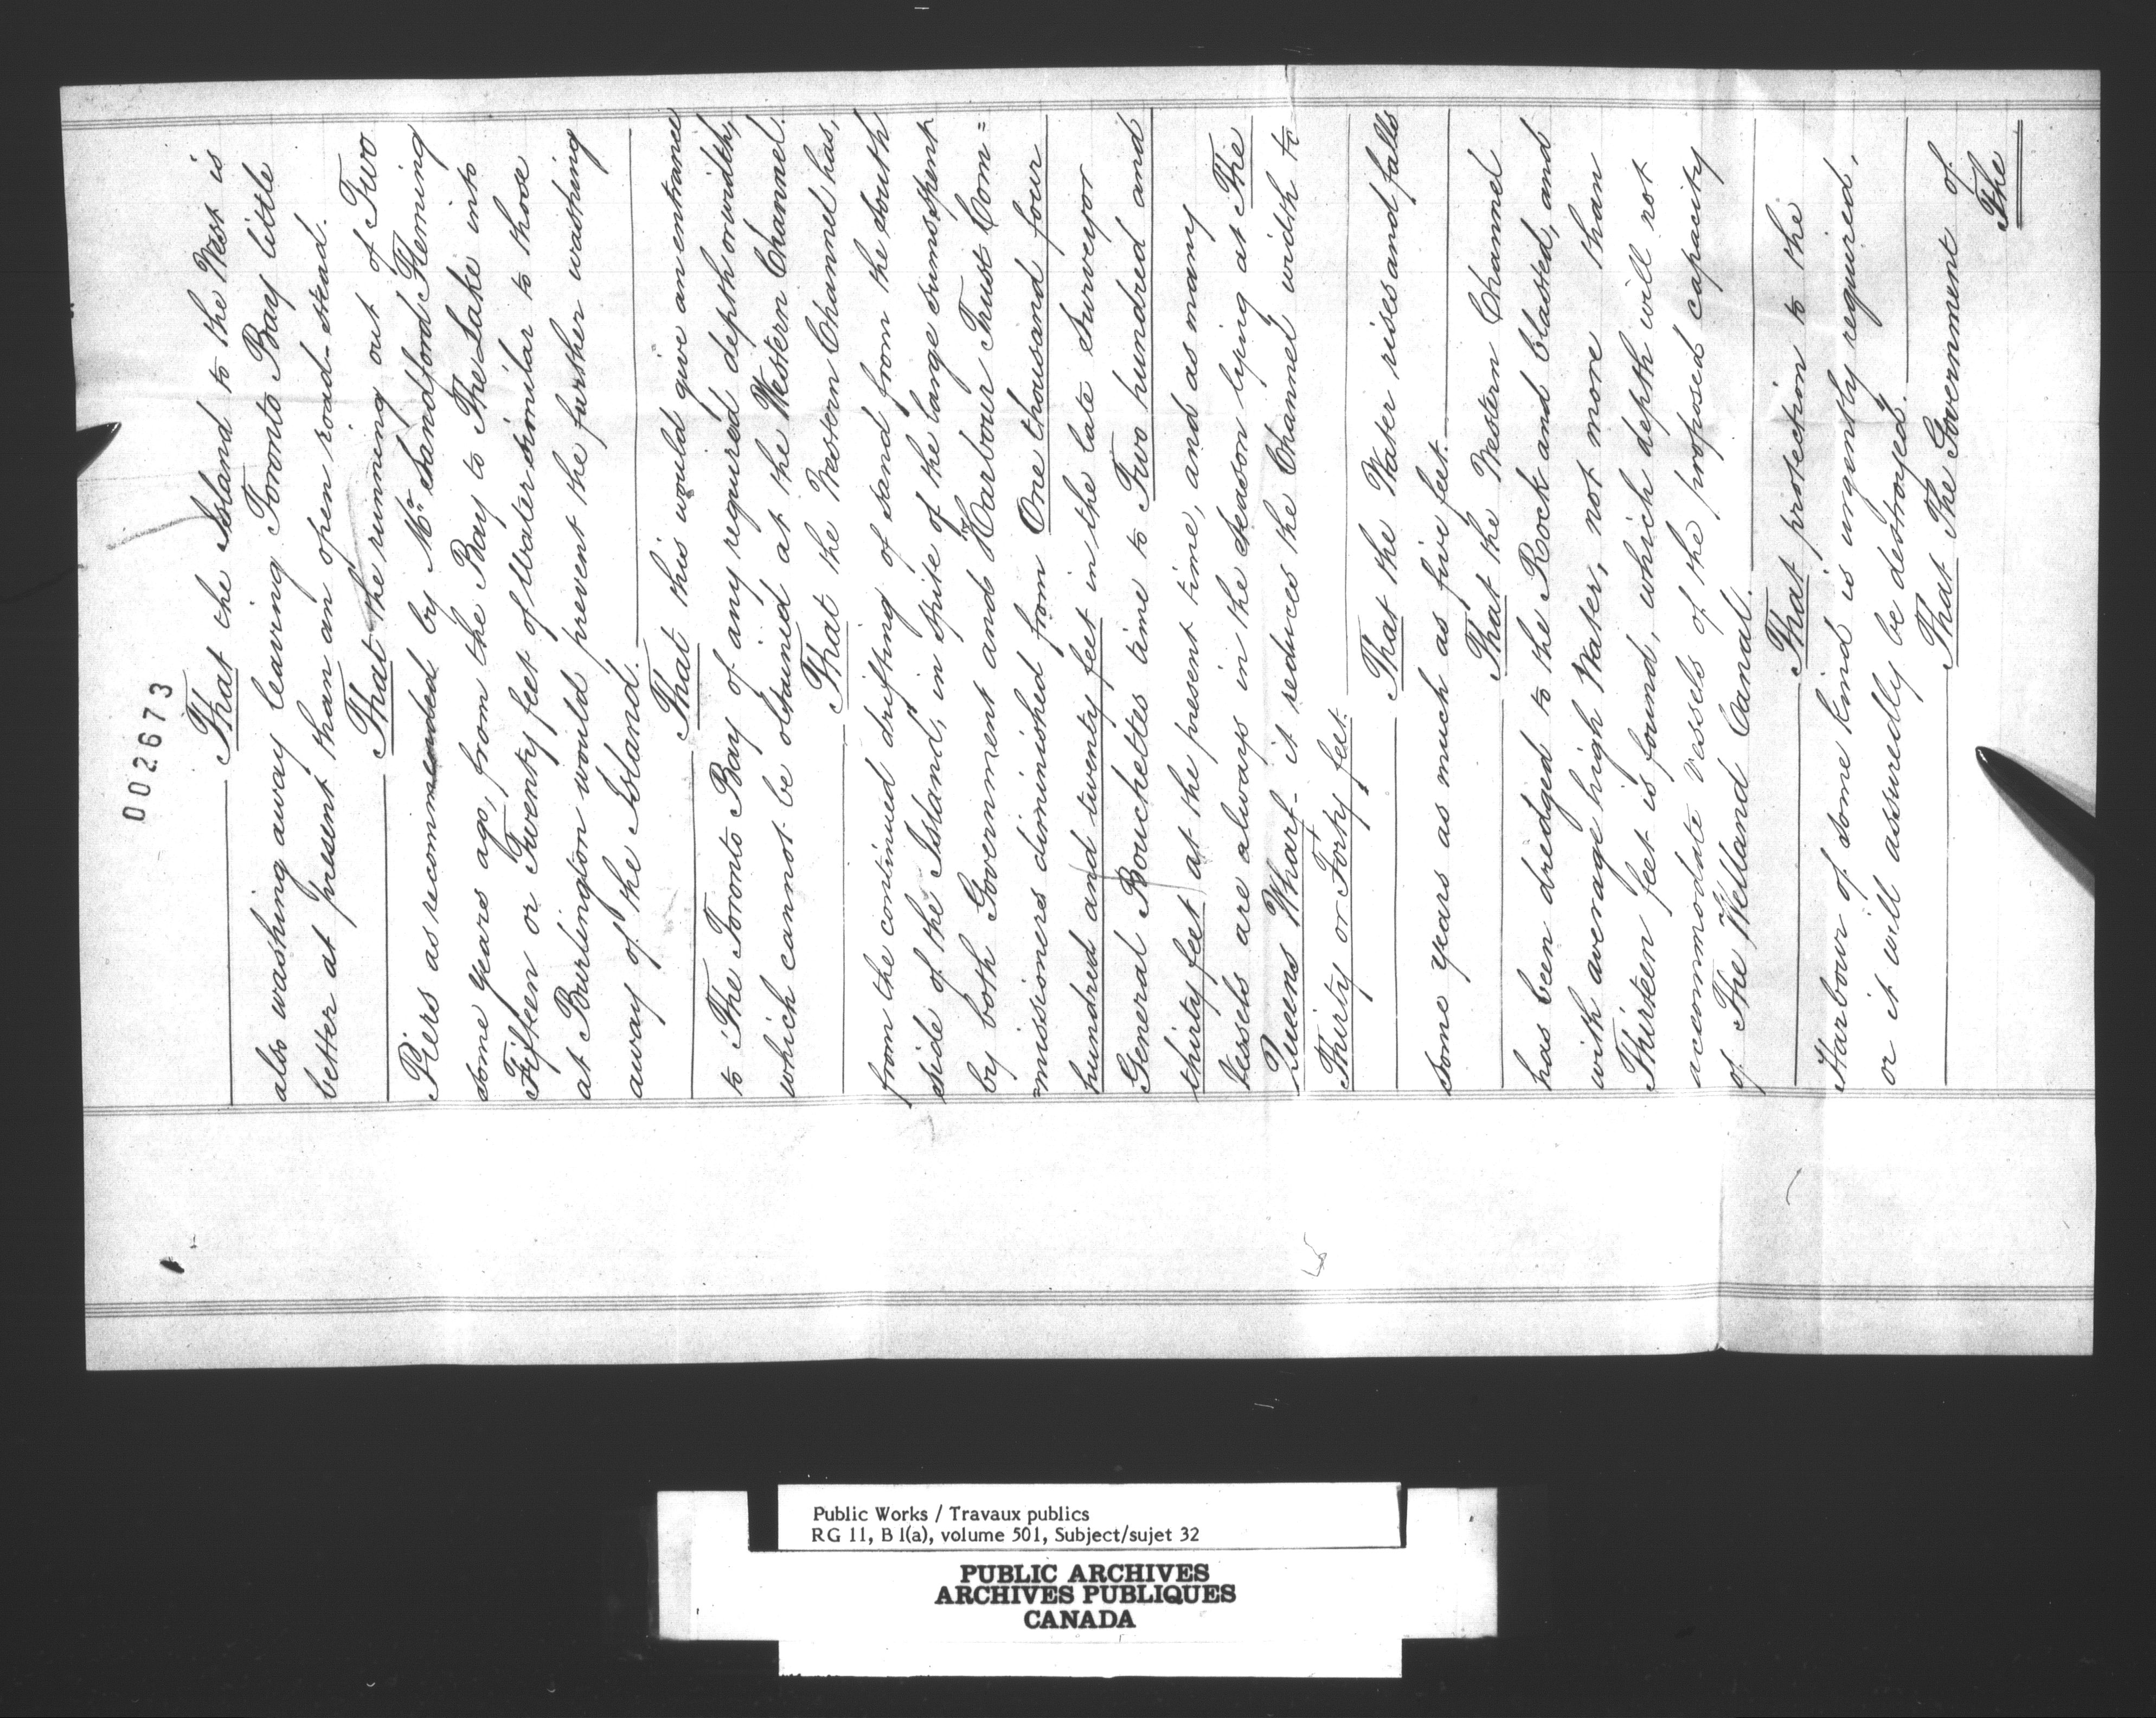 002673
That the Island to the West is
also washing away leaving Toronto Bay little
better at present than an open road-stead.
That the running out of Two
Piers as recommended by Mr Sandford Fleming
some years ago, from the Bay to The Lake into
Fifteen or Twenty feet of Water similar to those
at Burlington would prevent the further washing
away of the Island.
That this would give an entrance
to The Toronto Bay of any required depth or width,
which cannot be obtained at the Western Channel.
That the Western Channel has,
from the continued drifting of sand from the South
side of the Island, in spite of the large sums spent
by both Government and Harbour Trust Com=
=missioners diminished from One thousand four
hundred and twenty feet in the late Surveyor
General Bouchettes time to Two hundred and
thirty feet at the present time, and as many
Vessels are always in the Season lying at The
Queens Wharf - it reduces the Channel width to
Thirty or Forty feet.
That the Water rises and falls
some years as much as five feet.
That the Western Channel
has been dredged to the Rock and blasted, and
with average high Water, not more than
Thirteen feet is found, which depth will not
accommodate vessels of the proposed capacity
of The Welland Canal.
That protection to the
Harbour of some kind is urgently required,
or it will assuredly be destroyed.
That The Government of
The
Public Works / Travaux publics
RG 11, B 1(a), volume 501, Subject/sujet 32
PUBLIC ARCHIVES
ARCHIVES PUBLIQUES
CANADA